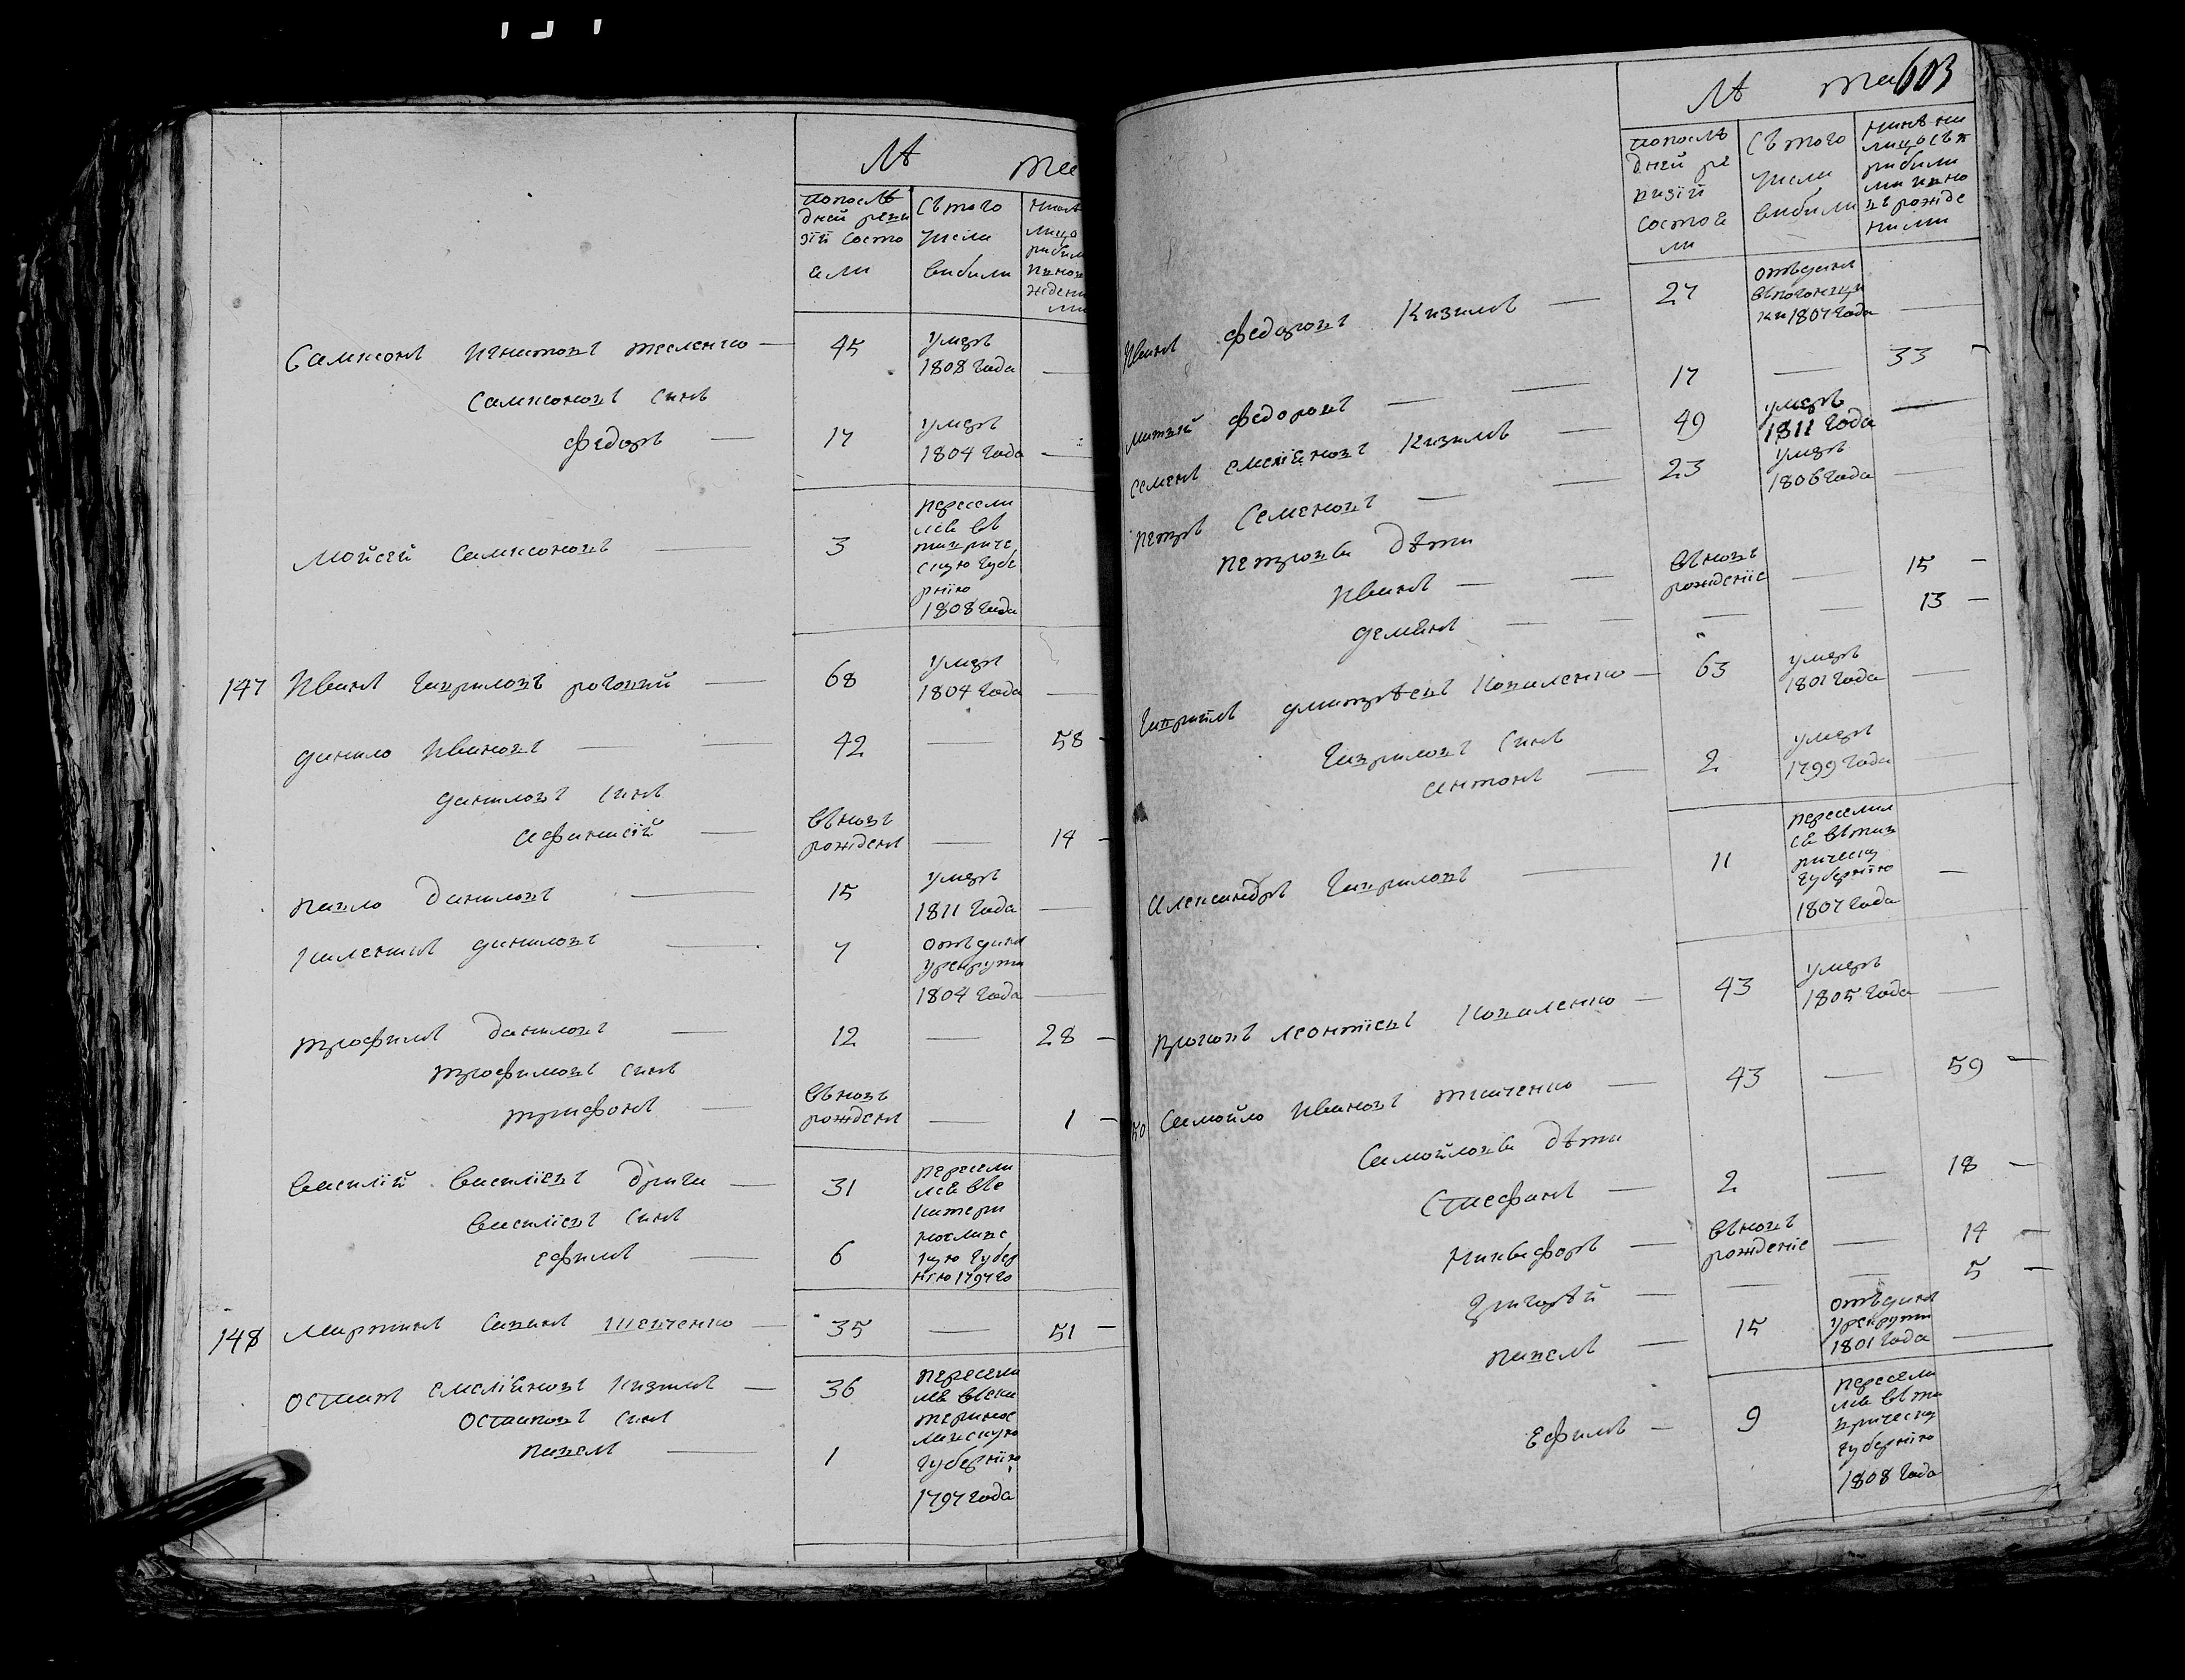 Лѣ та
по послѣ
дней реви
зіи состо
яли
Съ того
числа
выбыли
Самсонъ Игнатовъ тесленко — 45 умеръ
1808 года —
Самсоновъ сынъ
Федоръ — 17 умеръ
1804 года —
Мойсей Самсоновъ — 3 пересели
лся въ
тавриче
скую губе
рнію
1808 года
147 Иванъ Гавриловъ роговий — 68 умеръ
1804 года —
данило Ивановъ — — 42 — 58 -
даниловъ сынъ
Афанасій — вновь
рожденъ — 14 -
павло даниловъ — 15 умеръ
1811 года —
даниловъ — 7 отъданъ
у рекруты
1804 года —
трофимъ даниловъ — 12 — 28 -
трофимовъ сынъ
трифонъ — вновь
рожденъ — 1 -
василій васіліевъ дрига — 31 пересели
лся въ е
катери
нославс
кую губер
нію 1797 го
васіліевъ сынъ
ефимъ — 6
148 Мартинъ Савинъ шевченко — 35 — 51 -
остапъ емеліяновъ кизимъ — 36 пересели
лся въ ека
теринос
лавскую
губернію
1797 года
остаповъ сынъ
павелъ — 1
Лѣ та 603
по послѣ
дней ре
визіи
состоя
ли
Съ того
числа
выбыли
Иванъ федоровъ Кизимъ — 27 отъданъ
въ погонщи
ки 1807 года —
матвій федоровъ — — 17 — 33 -
семенъ емеліяновъ Кизимъ — 49 умеръ
1811 года —
петръ Семеновъ — — 23 умеръ
1806 года —
петровы дѣти
Иванъ — — вновь
рожденіе — 15 -
демянъ — — — — 13 -
Гаврило дмитрѣевъ Коваленко — 63 умеръ
1801 года —
Гавриловъ сынъ
антонъ — 2 умеръ
1799 года —
Александръ Гавриловъ — 11 переселил
ся въ тав
рическу
губернію
1807 года —
леонтіевъ Коваленко — 43 умеръ
1805 года —
50 Самойло Ивановъ ткаченко — 43 — 59 —
Самойловы дѣти
Стефанъ — 2 — 18 -
Никифоръ — вновь
рожденіе — 14 -
григорѣй — — — 5 -
павелъ — 15 отъданъ
у рекруты
1801 года —
Ефимъ — 9 пересели
лся въ та
врическу
губернію
1808 года